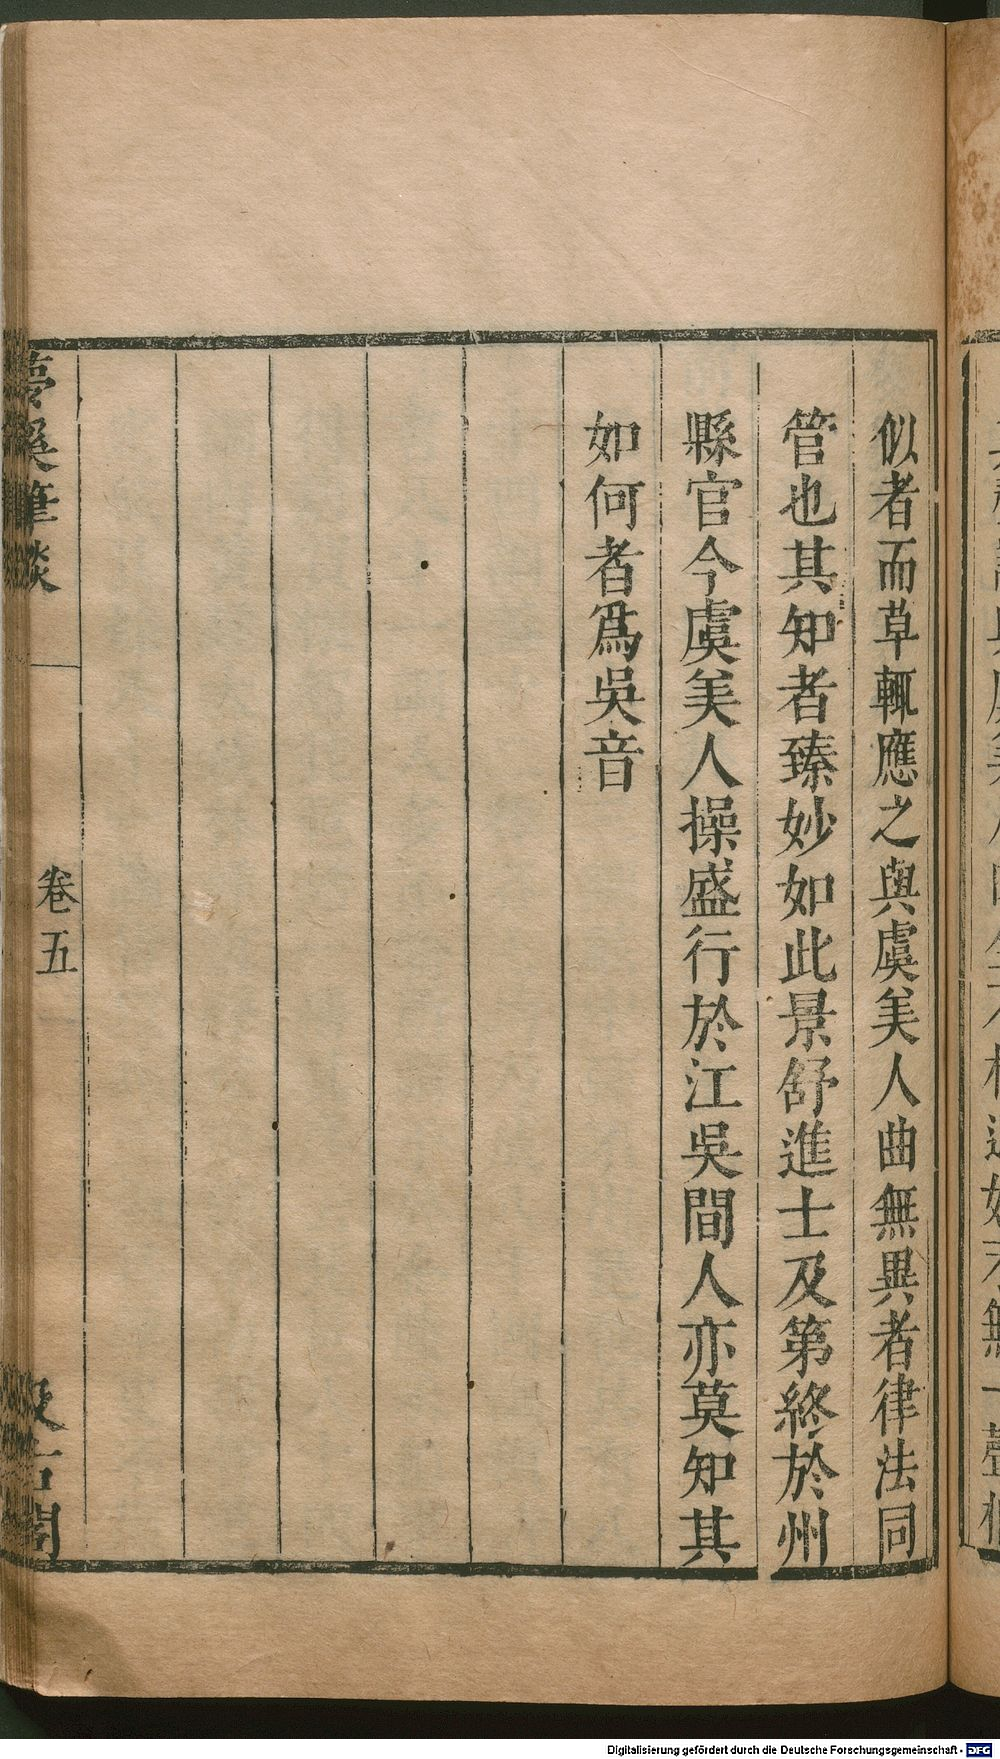 似者而草輒應之與虞美人曲無異者律法同
管也其知者臻妙如此景舒進士及第終於州
縣官今虞美人操盛行於江吳間人亦莫知其
如何者爲吳音
夢溪筆談
卷五
汲古閣
Digitalisierung gefördert durch die Deutsche Forschungsgemeinschaft - DFG